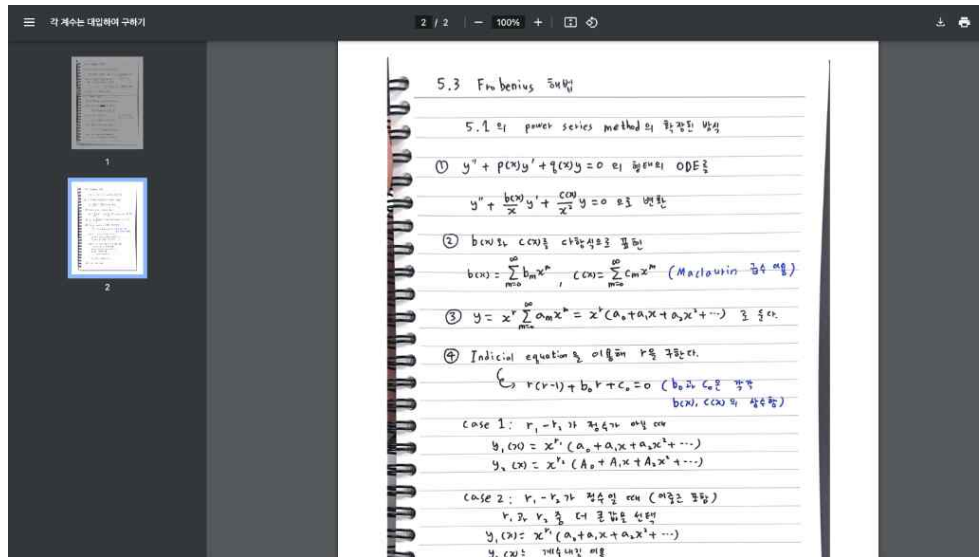 각 계수는 대입하여 구하기
2 / 2 — 100% +
1
2
5.3 Frobenius 해법
5.1의 power series method의 확장된 방식
① y″ + p(x)y′ + q(x)y = 0 의 형태의 ODE를
y″ + b(x)/x y′ + c(x)/x² y = 0 으로 변환
② b(x)와 c(x)를 다항식으로 표현
b(x) = ∑_{m=0}^{∞} b_m x^m , c(x) = ∑_{m=0}^{∞} c_m x^m (Maclaurin 급수 이용)
③ y = x^r ∑_{m=0}^{∞} a_m x^m = x^r (a₀ + a₁x + a₂x² + ⋯) 로 둔다.
④ Indicial equation을 이용해 r을 구한다.
r(r-1) + b₀r + c₀ = 0 (b₀과 c₀은 각각
b(x), c(x)의 상수항)
case 1 : r₁ - r₂ 가 정수가 아닐 때
y₁(x) = x^{r₁} (a₀ + a₁x + a₂x² + ⋯)
y₂(x) = x^{r₂} (A₀ + A₁x + A₂x² + ⋯)
case 2 : r₁ - r₂가 정수일 때 (이중근 포함)
r₁과 r₂ 중 더 큰 값을 선택
y₁(x) = x^{r₁} (a₀ + a₁x + a₂x² + ⋯)
y₂(x)는 계수내림 이용